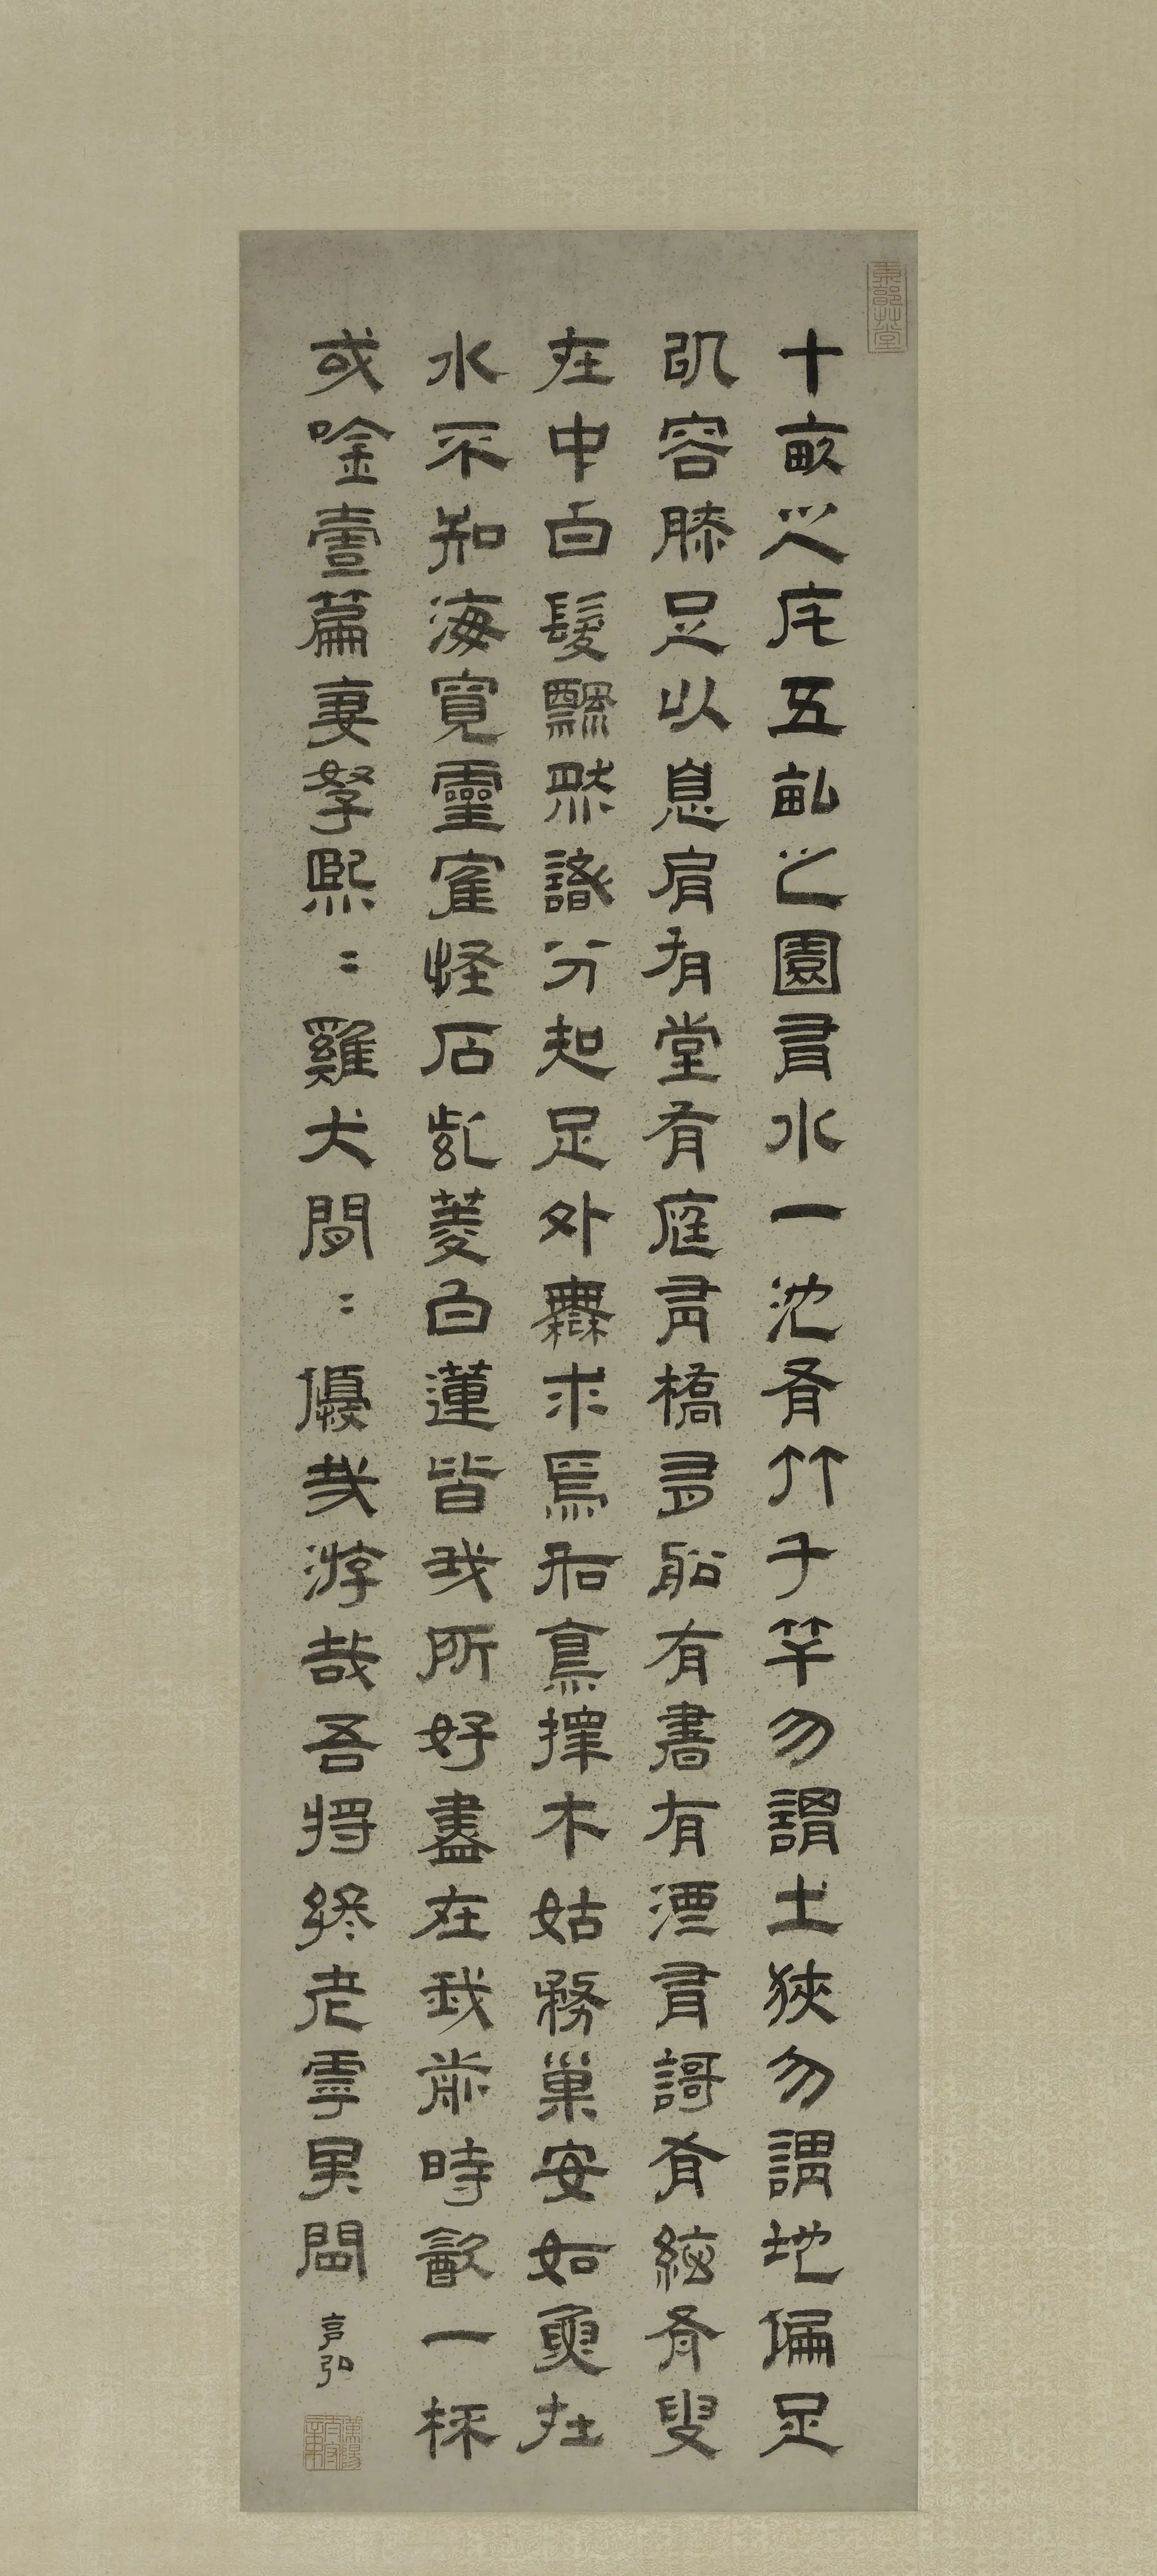 十畝之宅五畝之園有水一池有竹千竿勿謂土狹勿謂地偏足
以容膝足以息肩有堂有庭有橋有船有書有酒有謌有絃有叟
在中白髮飄然識分知足外無求焉如鳥擇木姑務巢安如魚在
水不知海寬靈隺怪石紫菱白蓮皆我所好盡在我前時飲一杯
或唫壹篇妻孥熙〻雞犬閒〻優哉游哉吾將終老虖其間